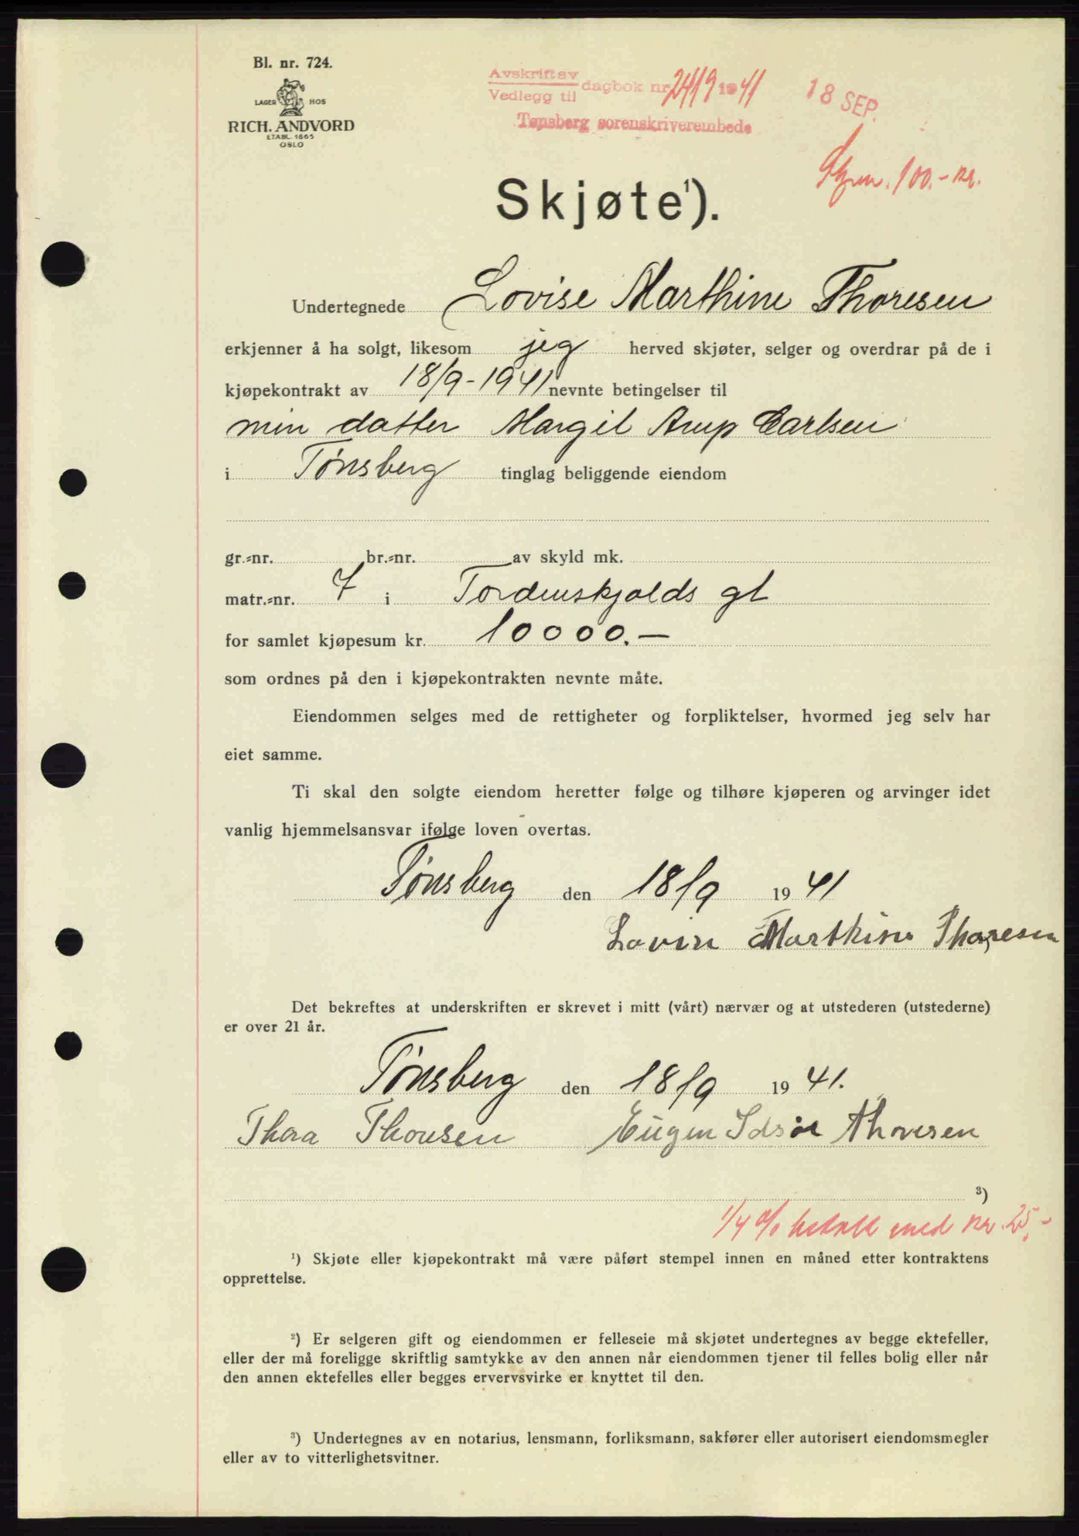 Bl. nr. 724.
LAGER HOS
RICH. ANDVORD
ETABL. 1865
OSLO
Avskrift av
Vedlegg til dagbok nr 2419 1941
Tønsberg sorenskriverembede
18 SEP.
100.- kr.
Skjøte¹).
Undertegnede Lovise Marthine Thoresen
erkjenner å ha solgt, likesom jeg herved skjøter, selger og overdrar på de i
kjøpekontrakt av 18/9-1941 nevnte betingelser til
min datter Margit Arup Carlsen
i Tønsberg tinglag beliggende eiendom
gr.-nr. br.-nr. av skyld mk.
matr.-nr. 7 i Tordenskjolds gt
for samlet kjøpesum kr. 10000.-
som ordnes på den i kjøpekontrakten nevnte måte.
Eiendommen selges med de rettigheter og forpliktelser, hvormed jeg selv har
eiet samme.
Ti skal den solgte eiendom heretter følge og tilhøre kjøperen og arvinger idet
vanlig hjemmelsansvar ifølge loven overtas.
Tønsberg den 18/9 1941
Lovise Marthine Thoresen
Det bekreftes at underskriften er skrevet i mitt (vårt) nærvær og at utstederen (utstederne)
er over 21 år.
Tønsberg den 18/9 1941.
Thora Thoresen Eugen Idsøe Thoresen
³)
1/4 % betalt med kr. 25,-
¹) Skjøte eller kjøpekontrakt må være påført stempel innen en måned etter kontraktens
opprettelse.
²) Er selgeren gift og eiendommen er felleseie må skjøtet undertegnes av begge ektefeller,
eller der må foreligge skriftlig samtykke av den annen når eiendommen tjener til felles bolig eller når
den annen ektefelles eller begges ervervsvirke er knyttet til den.
³) Undertegnes av en notarius, lensmann, forliksmann, sakfører eller autorisert eiendomsmegler
eller av to vitterlighetsvitner.